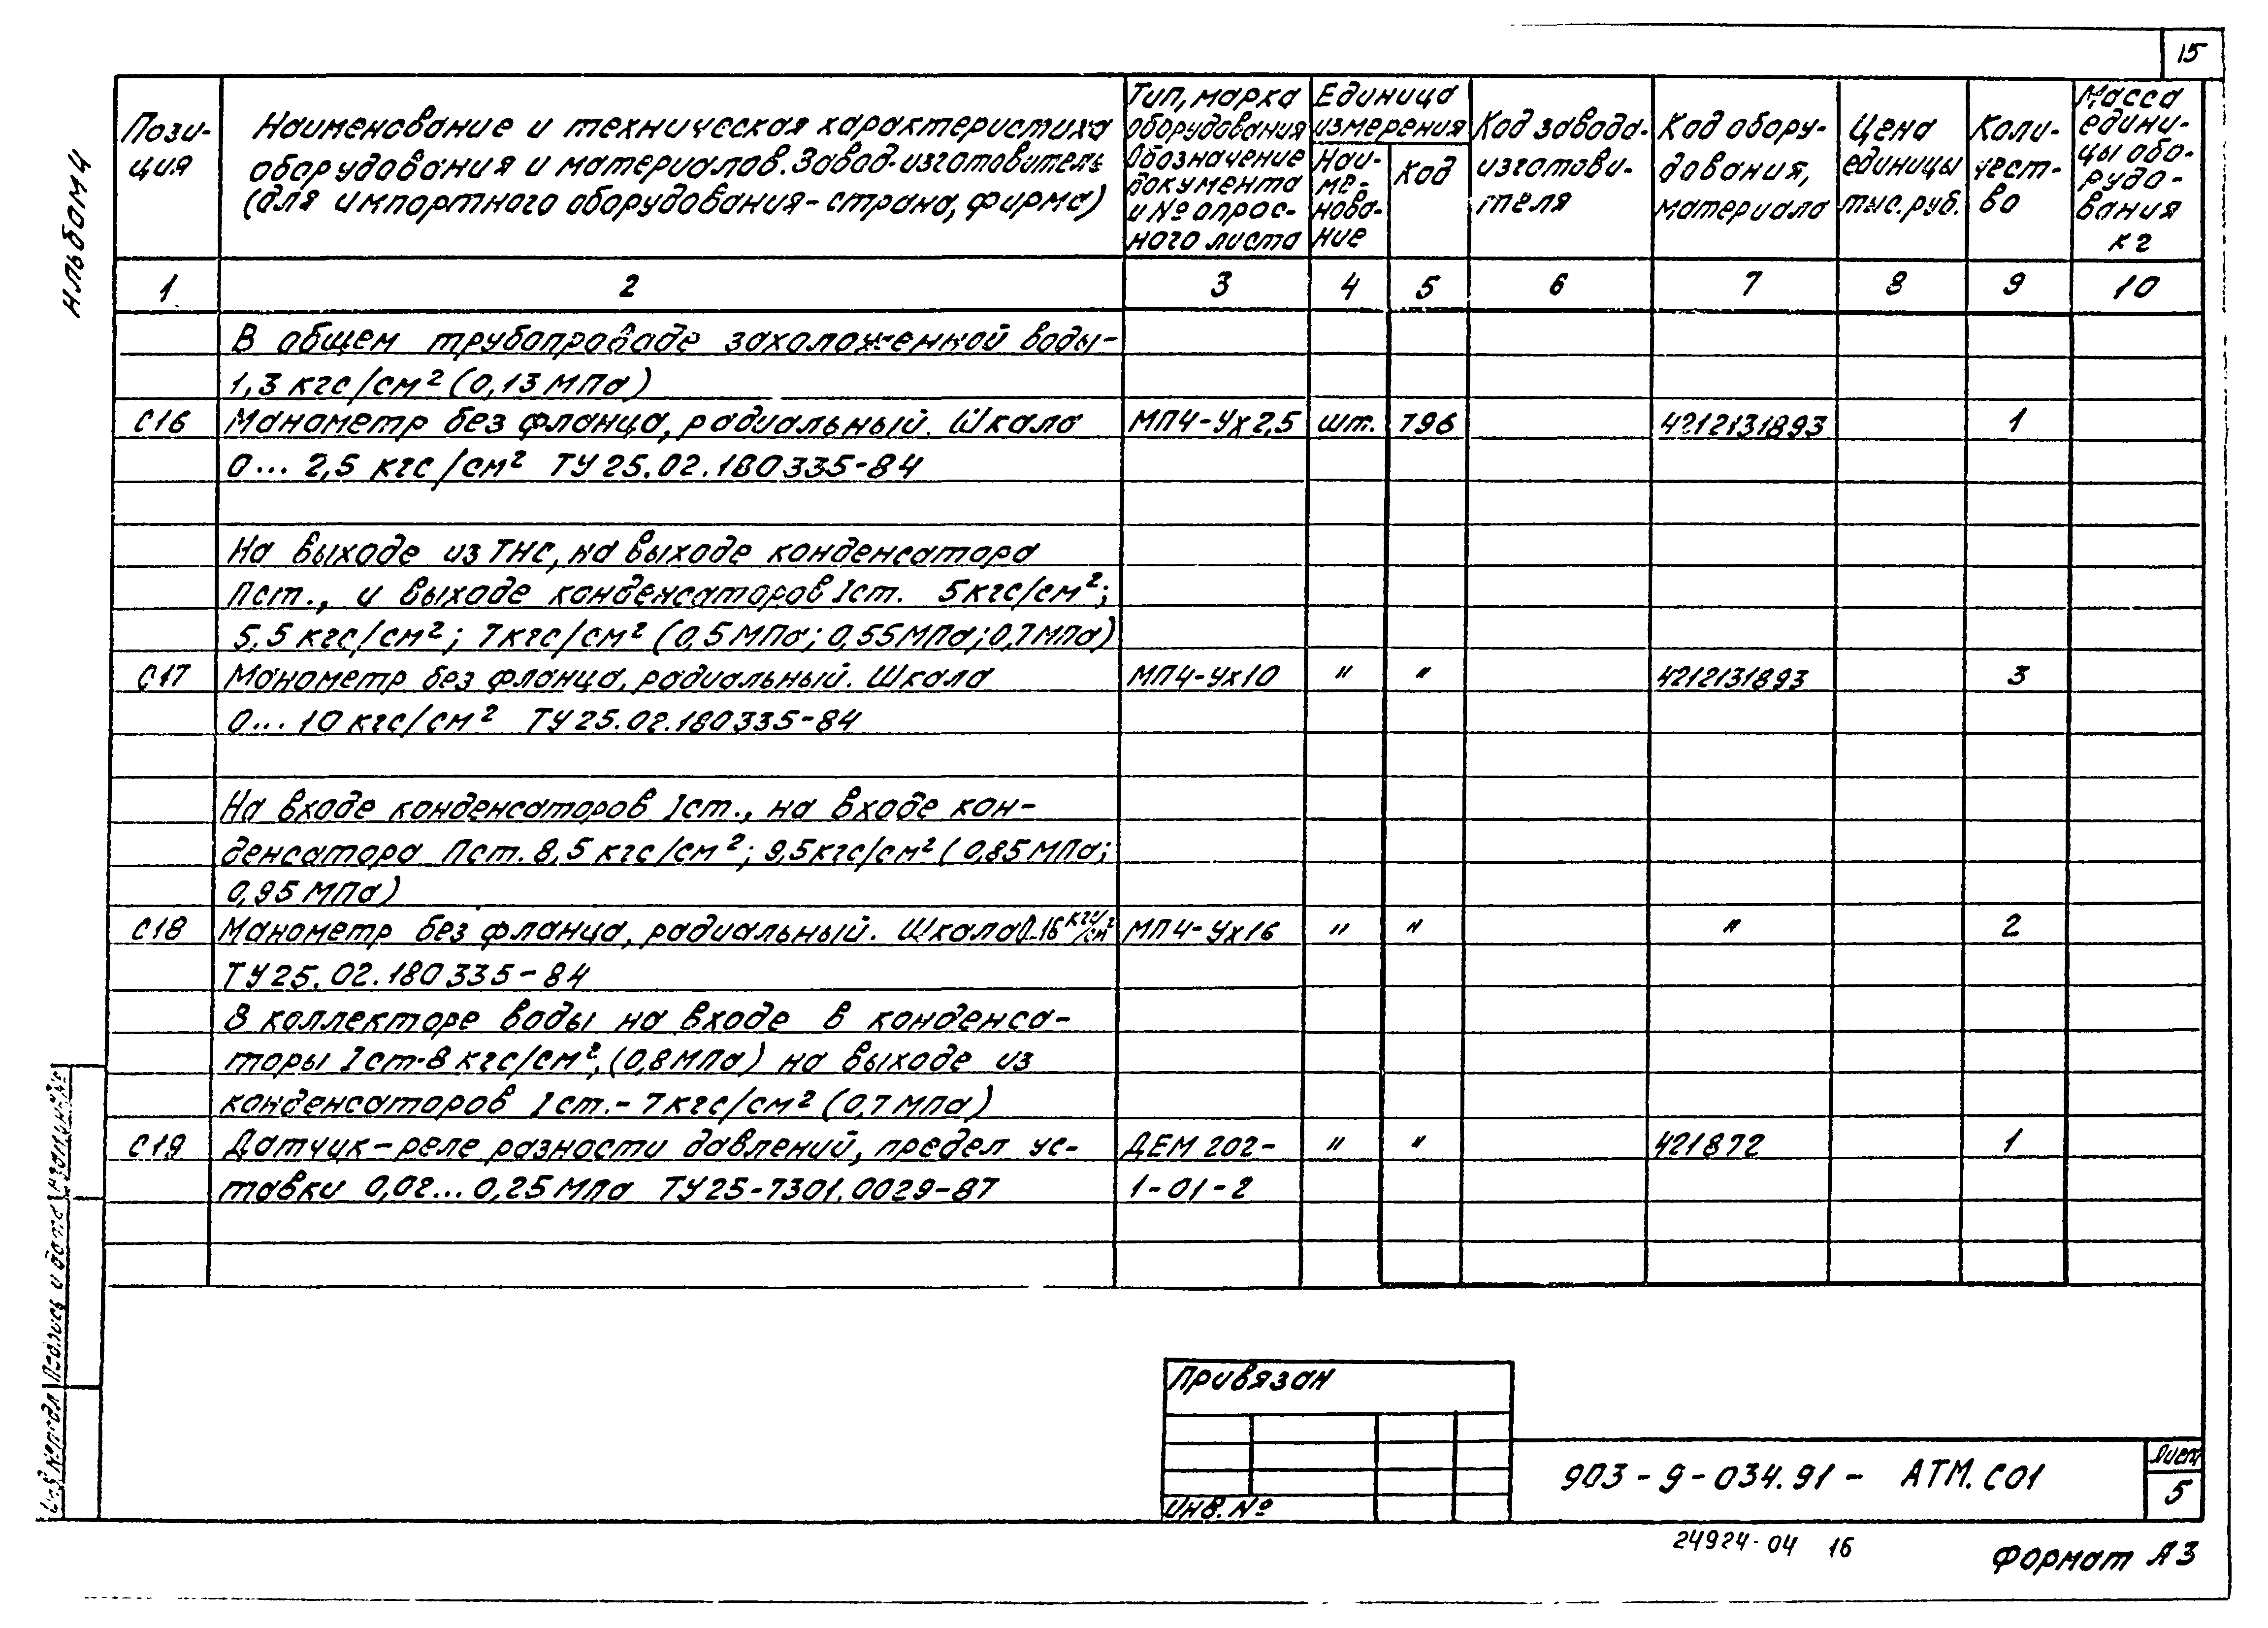 15
Альбом 4
Пози-
ция
Наименование и техническая характеристика
оборудования и материалов. Завод-изготовитель
(для импортного оборудования-страна, фирма)
Тип, марка
оборудования
Обозначение
документа
и № опрос-
ного листа
Единица
измерения
Наи-
ме-
нова-
ние
Код
Код завода-
изготови-
теля
Код обору-
дования,
материала
Цена
единицы
тыс. руб.
Коли-
чест-
во
Масса
едини-
цы обо-
рудо-
вания
кг
1 2 3 4 5 6 7 8 9 10
В общем трубопроваде захоложенной воды-
1,3 кгс/см² (0,13 МПа)
С16 Манометр без фланца, радиальный. Шкала МП4-Ух2,5 шт. 796 4212131893 1
0... 2,5 кгс/см² ТУ 25.02.180335-84
На выходе из ТНС, на выходе конденсатора
IIст., и выходе конденсаторов Iст. 5кгс/см²;
5,5 кгс/см²; 7кгс/см² (0,5 МПа; 0,55 МПа; 0,7 МПа)
С17 Манометр без фланца, радиальный. Шкала МП4-Ух10 " " 4212131893 3
0... 10 кгс/см² ТУ 25.02.180335-84
На входе конденсаторов Iст., на входе кон-
денсатора IIст. 8,5 кгс/см²; 9,5кгс/см² (0,85 МПа;
0,95 МПа)
С18 Манометр без фланца, радиальный. Шкала 0..16 кгс/см² МП4-Ух16 " " " 2
ТУ 25.02.180335-84
В коллекторе воды на входе в конденса-
торы Iст-8 кгс/см², (0,8 МПа) на выходе из
конденсаторов Iст.- 7кгс/см² (0,7 МПа)
С19 Датчик-реле разности давлений, предел ус- ДЕМ 202- " " 421872 1
тавки 0,02... 0,25 МПа ТУ 25-7301.0029-87 1-01-2
Подпись и дата
Привязан
Инв. №
903-9-034.91- АТМ.С01
Лист
5
24924-04 16
Формат А3